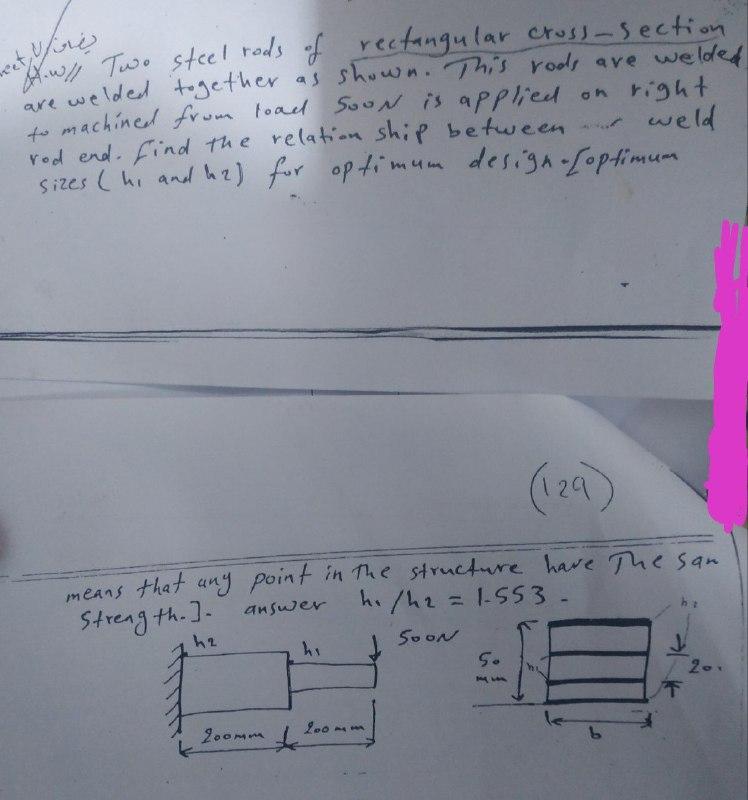 H.W// Two steel rods of rectangular cross-section
are welded together as shown. This rods are welded
to machined from load 500N is applied on right
rod end. Find the relation ship between weld
sizes (h1 and h2) for optimum design.[optimum
(129)
means that any point in the structure have The sam
Strength.]. answer h1/h2 = 1.553.
h2
h1
500N
200mm
200mm
50
mm
h1
h2
20.
b